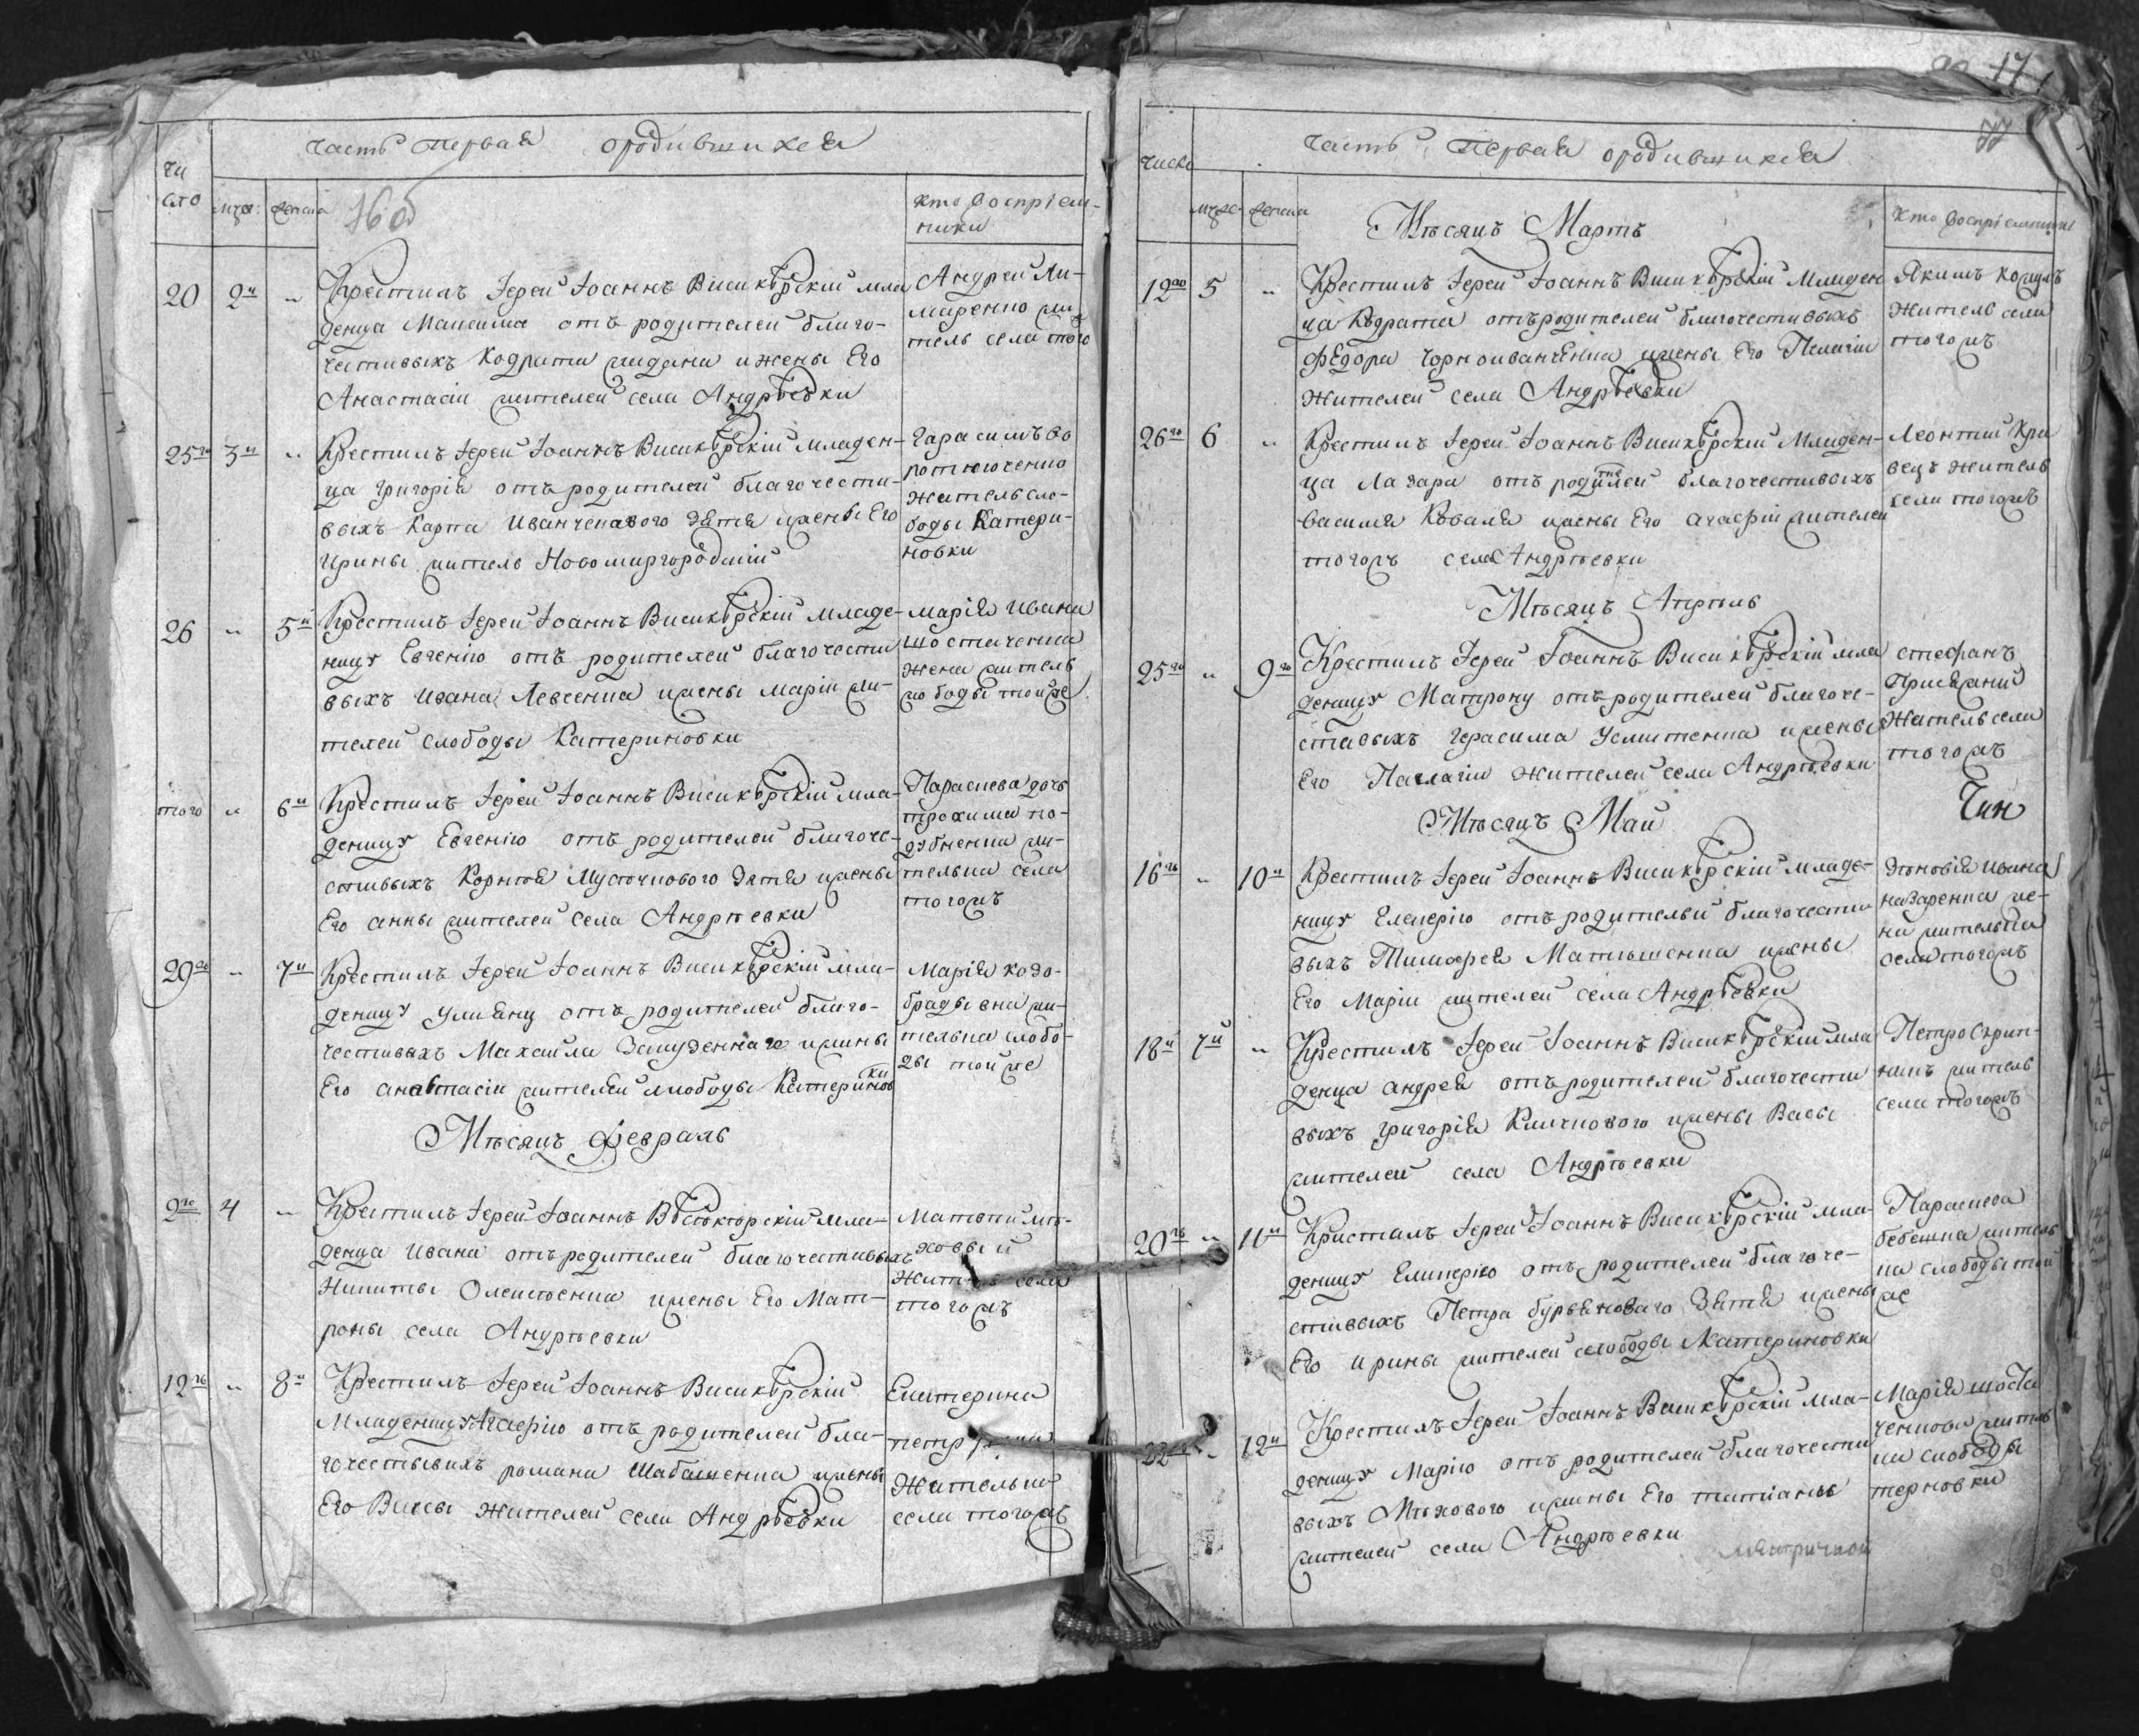 часть первая о родившихся
чи
сло
муж: женска
16об
кто воспріем-
ники
20
2й
Крестилъ Іерей Іоаннъ Висикирскій мла
денца Максима отъ родителей благо-
честивыхъ Кодрата жидана и жены Его
Анастасіи жителей села Андрѣевки
Андрей Ли-
маренко жи
тель села того
25го
3й
Крестилъ Іерей Іоаннъ Висикирскій младен-
ца Григорія отъ родителей благочести-
выхъ Карпа Иванченкового Зятя и жены Его
Ирины житель Новомиргородскій
Гарасимъ Во
ротюченко
житель сло-
боды Катери-
новки
26
5й
Крестилъ Іерей Іоаннъ Висикирскій младе-
ницу Евгенію отъ родителей благочести
выхъ Ивана Левсенка и жены Маріи жи-
телей слободы Катериновки
Марія Ивана
шостаченка
жена житель
слободы той же
того
6й
Крестилъ Іерей Іоаннъ Висикирскій мла-
деницу Евгенію отъ родителей благоче-
стивыхъ Корнѣя Мусѣчкового Зятя и жены
Его анны жителей села Андрѣевки
Параскева дочь
трохима
жи-
телька села
тогожъ
29го
7й
Крестилъ Іерей Іоаннъ Висикирскій мла-
деницу Улияну отъ родителей благо-
честивыхъ Махаила и жены
Его анастасіи жителей слободы Катеринов
ки
Марія козо-
брадывна жи-
телька слобо-
ды той же
Мѣсяцъ Февраль
2го
4
Крестилъ Іерей Іоаннъ Висикирскій мла-
денца Ивана отъ родителей благочестивыхъ
Никиты Олексѣенка и жены Его Мат-
роны села Андрѣевки
Матвѣй мѣ-
ховый
житель села
тогожъ
12го
8й
Крестилъ Іерей Іоаннъ Висикирскій
Младеницу Агафію отъ родителей бла-
гочестывихъ романа Шабашенка и жены
Его Васы жителей села Андрѣевки
Екатерина
Жителька
села тогожъ
17
77
часть Первая о родившихся
число
муже- женска
кто воспріемники
Мѣсяцъ Мартъ
12го
5
Крестилъ Іерей Іоаннъ Висикирскій Младен
ца Кодрата отъ родителей благочестивыхъ
Федора Чорноиванченка и жены Его Пелагіи
Жителей села Андрѣевки
Якимъ
Житель села
тогожъ
26го
6
Крестилъ Іерей Іоаннъ Висикирскій Младен-
ца Лазара отъ родителей благочестивыхъ
Василя Коваля и жены Его агафіи жителей
тогожъ села Андрѣевки
Леонтий Кра
вецъ житель
села тогожъ
Мѣсяцъ Апрѣль
25го
9го
Крестилъ Іерей Іоаннъ Висикирскій мла
деницу Матрону отъ родителей благоче-
стывыхъ Герасима Усатенка и жены
Его Палагіи жителей села Андрѣевки
Стефанъ
Присяжний
Житель села
тогожъ
Мѣсяцъ Май
Чин
16го
10й
Крестилъ Іерей Іоаннъ Висикирскій младе-
ницу Еликерію отъ родителей благочести
выхъ Тимофея Матяшенка и жены
Его Маріи жителей села Андрѣевки
Зѣновія Ивана
назаренка же-
на жителька
села тогожъ
18й
7й
Крестилъ Іерей Іоаннъ Висикирскій мла
денца андрея отъ родителей благочести
выхъ Григорія Климкового и жены Васы
жителей села Андрѣевки
Петро Скрип-
никъ житель
села тогожъ
20го
11й
Кристилъ Іерей Іоаннъ Висикирскій мла-
деницу Еликерію отъ родителей благоче-
стивыхъ Петра бурьяноваго Зятя и жены
Его ирины жителей слободы Катериновки
Параскева
бебешка житель
ка слободы той
же
22го
12й
Крестилъ Іерей Іоаннъ Висикирскій мла-
деницу Марію отъ родителей благочести
выхъ Мѣхового и жены Его татіаны
жителей села Андрѣевки
Марія шоста
ченкова житель
ка слободы
терновки